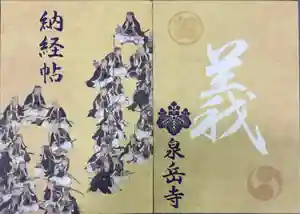 義
泉岳寺
納経帖